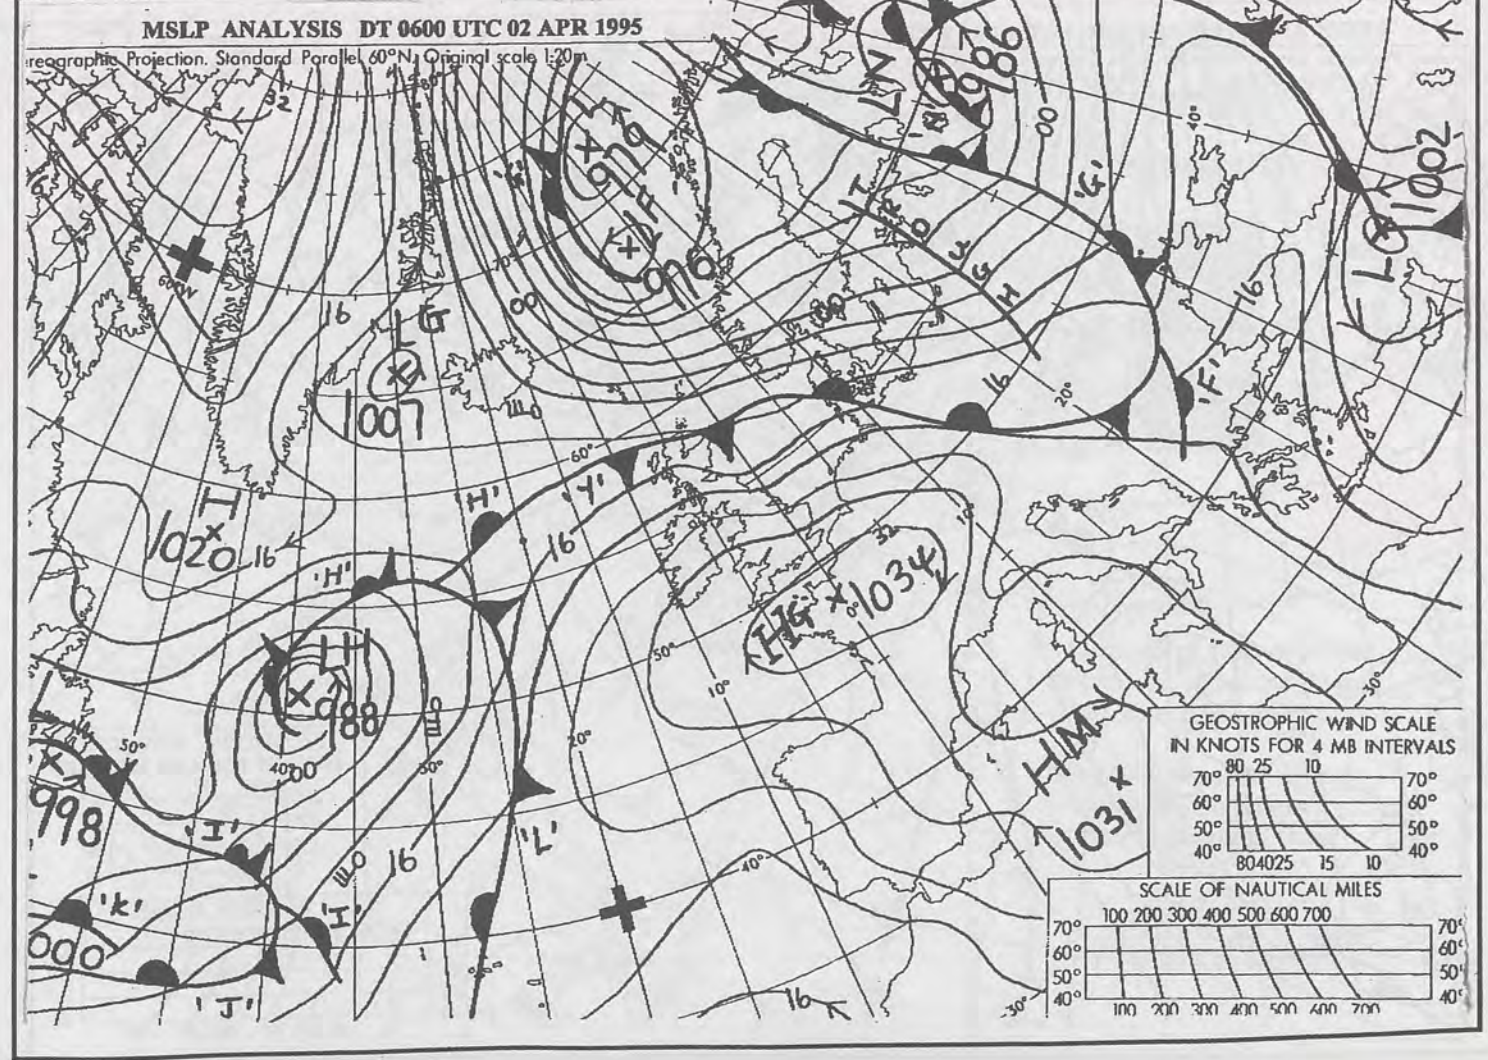 MSLP ANALYSIS DT 0600 UTC 02 APR 1995
reographic Projection. Standard Parallel 60°N: Original scale 1:20m
32
L
979
LF
976
LN
986
00
40°
'G'
L 1002
TROUGH
16
LG
1007
16
00
70°
60°W
60°
16
20°
16
'F'
H
1020
16
'H'
'Y'
16
'H'
32
10°
HG 1034
0°
LH
988
50°
10°
20°
30°
40°
00
50°
998
'I'
16
'L'
40°
HM
1031
30°
'K'
000
'I'
'J'
16
30°
GEOSTROPHIC WIND SCALE
IN KNOTS FOR 4 MB INTERVALS
80 25 10
70° 70°
60° 60°
50° 50°
40° 40°
80 40 25 15 10
SCALE OF NAUTICAL MILES
100 200 300 400 500 600 700
70° 70°
60° 60°
50° 50°
40° 40°
100 200 300 400 500 600 700